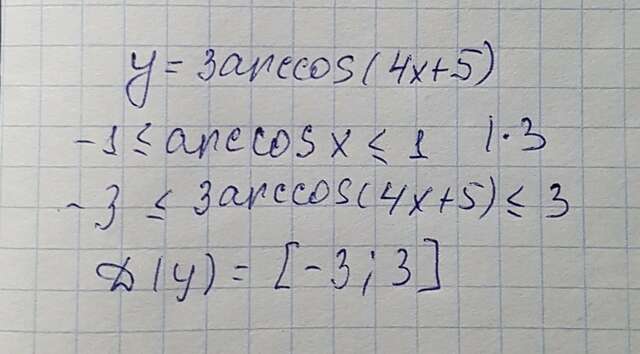 y = 3arccos(4x+5)
-1 ≤ arccos x ≤ 1 | · 3
-3 ≤ 3arccos(4x+5) ≤ 3
D(y) = [-3; 3]